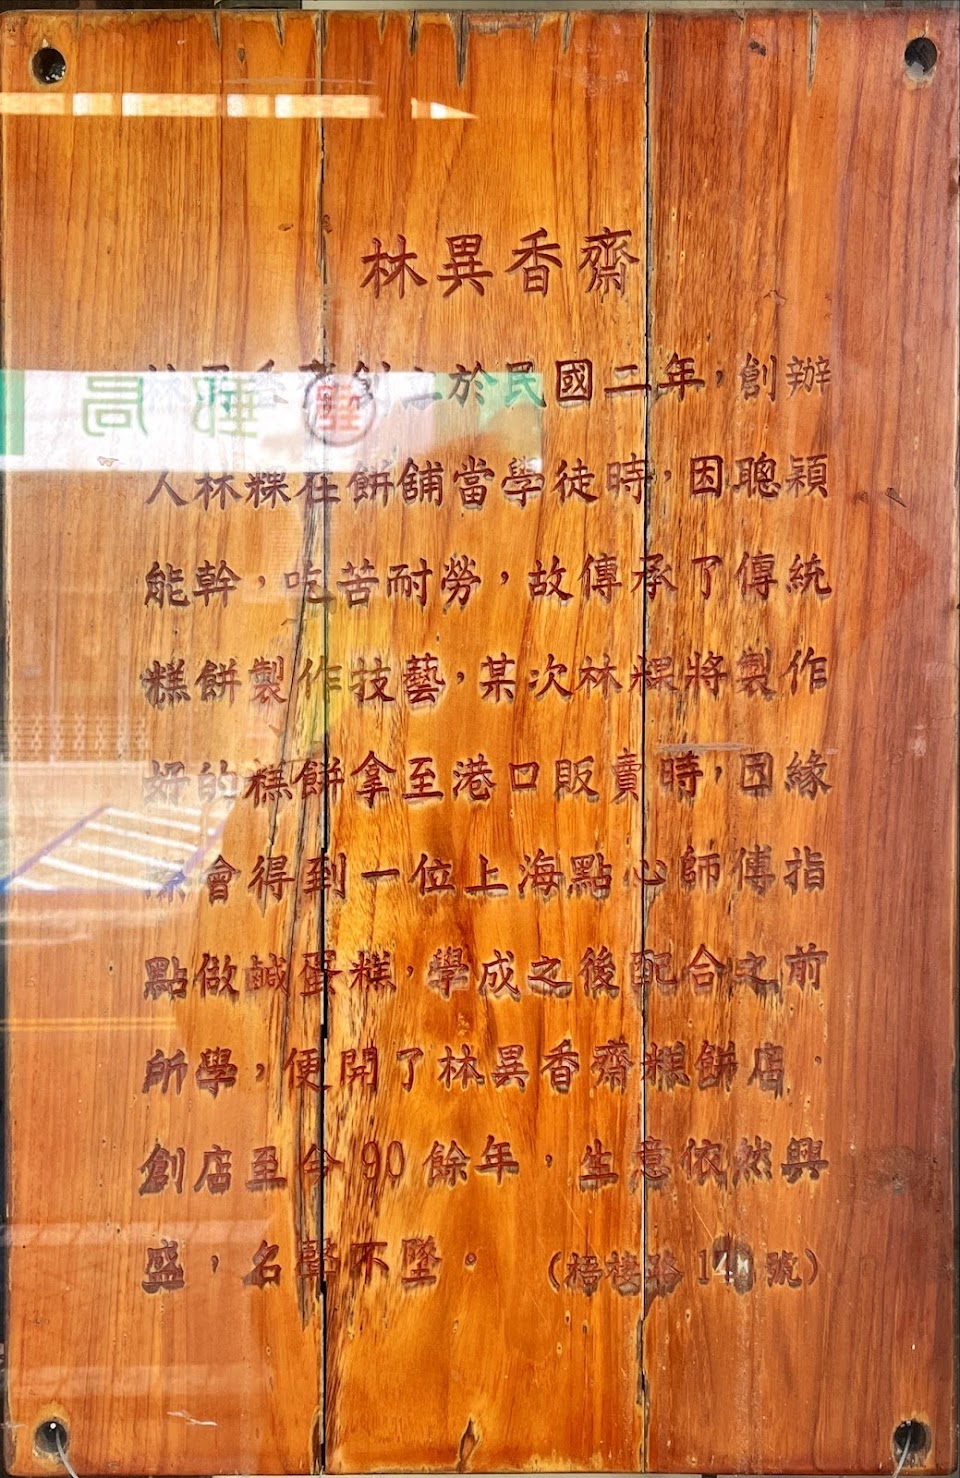 林異香齋
林異香齋創立於民國二年，創辦
人林粿在餅舖當學徒時，因聰穎
能幹，吃苦耐勞，故傳承了傳統
糕餅製作技藝，某次林粿將製作
好的糕餅拿至港口販賣時，因緣
際會得到一位上海點心師傅指
點做鹹蛋糕，學成之後配合之前
所學，便開了林異香齋糕餅店，
創店至今90餘年，生意依然興
盛，名聲不墜。（梧棲路 號）
郵局